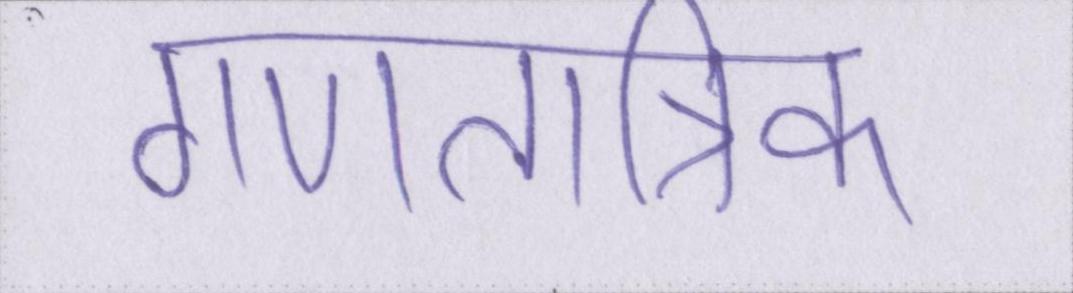 गणतात्रिक